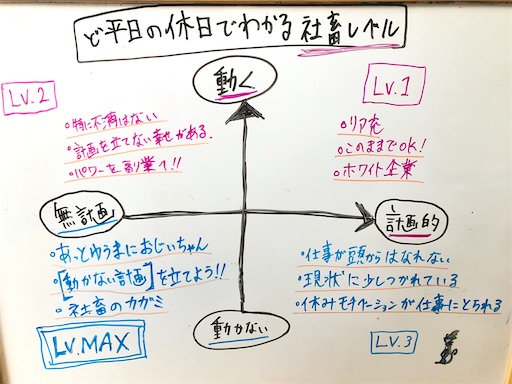 ど平日の休日でわかる社畜レベル
動く
Lv.2
・特に不満はない
・計画を立てない幸せがある.
・パワーを副業へ!!
Lv.1
・リア充
・このままでOK!
・ホワイト企業
無計画
計画的
・あっとゆうまにおじいちゃん
・[動かない計画]を立てよう!!
・社畜のカガミ
Lv.MAX
動かない
・仕事が頭からはなれない
・現状に少しつかれている
・休みモチベーションが仕事にとられる
Lv.3